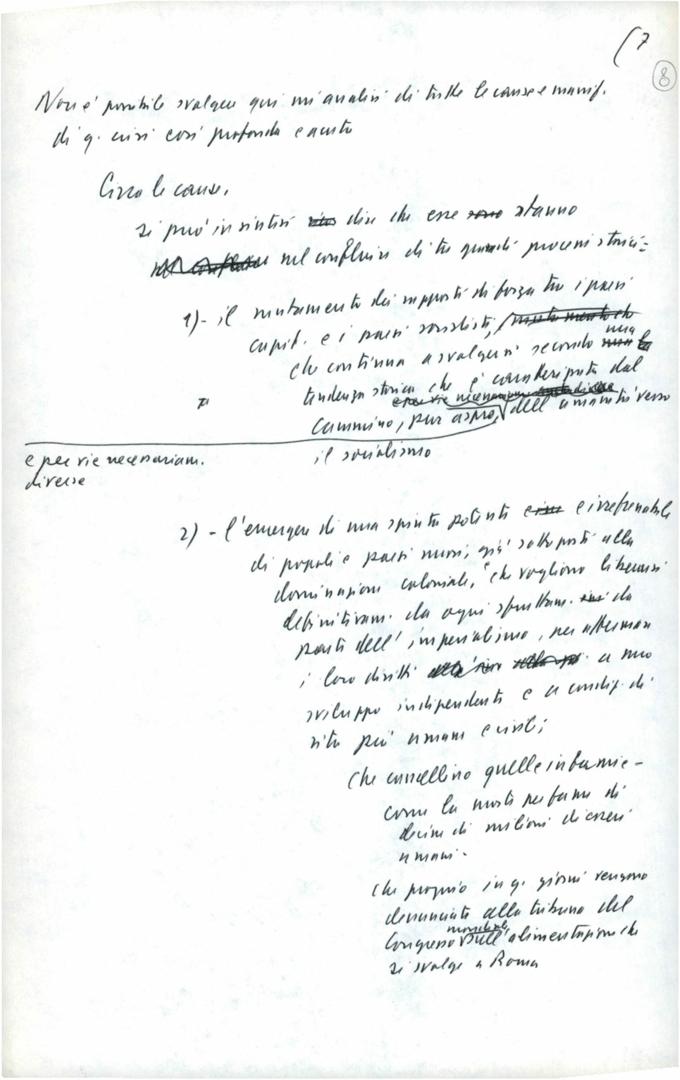 (7
8
Non e' possibile svolgere qui un'analisi di tutte le cause e manif.
di q. crisi così profonda e acuta
Circa le cause.
si può in sintesi dire che esse stanno
nel confluire di tre grandi processi storici=
1)- il mutamento dei rapporti di forza tra i paesi
capit. e i paesi socialisti,
che continua a svolgersi secondo una
tendenza storica che e' caratterizzata dal
cammino, pur aspro, dell'umanità verso
e per vie necessariam.
diverse
il socialismo
2) - l'emergere di una spinta potente e irrefrenabile
di popoli e paesi nuovi, già sottoposti alla
dominazione coloniale, che vogliono liberarsi
definitivam. da ogni sfruttam. da
parte dell'imperialismo, per affermare
i loro diritti a uno
sviluppo indipendente e a condiz. di
vita più umani e civili;
che cancellino quelle infamie -
come la morte per fame di
decine di milioni di esseri
umani -
che proprio in q. giorni vengono
denunciate alla tribuna del
Congresso mondiale sull'alimentazione che
si svolge a Roma